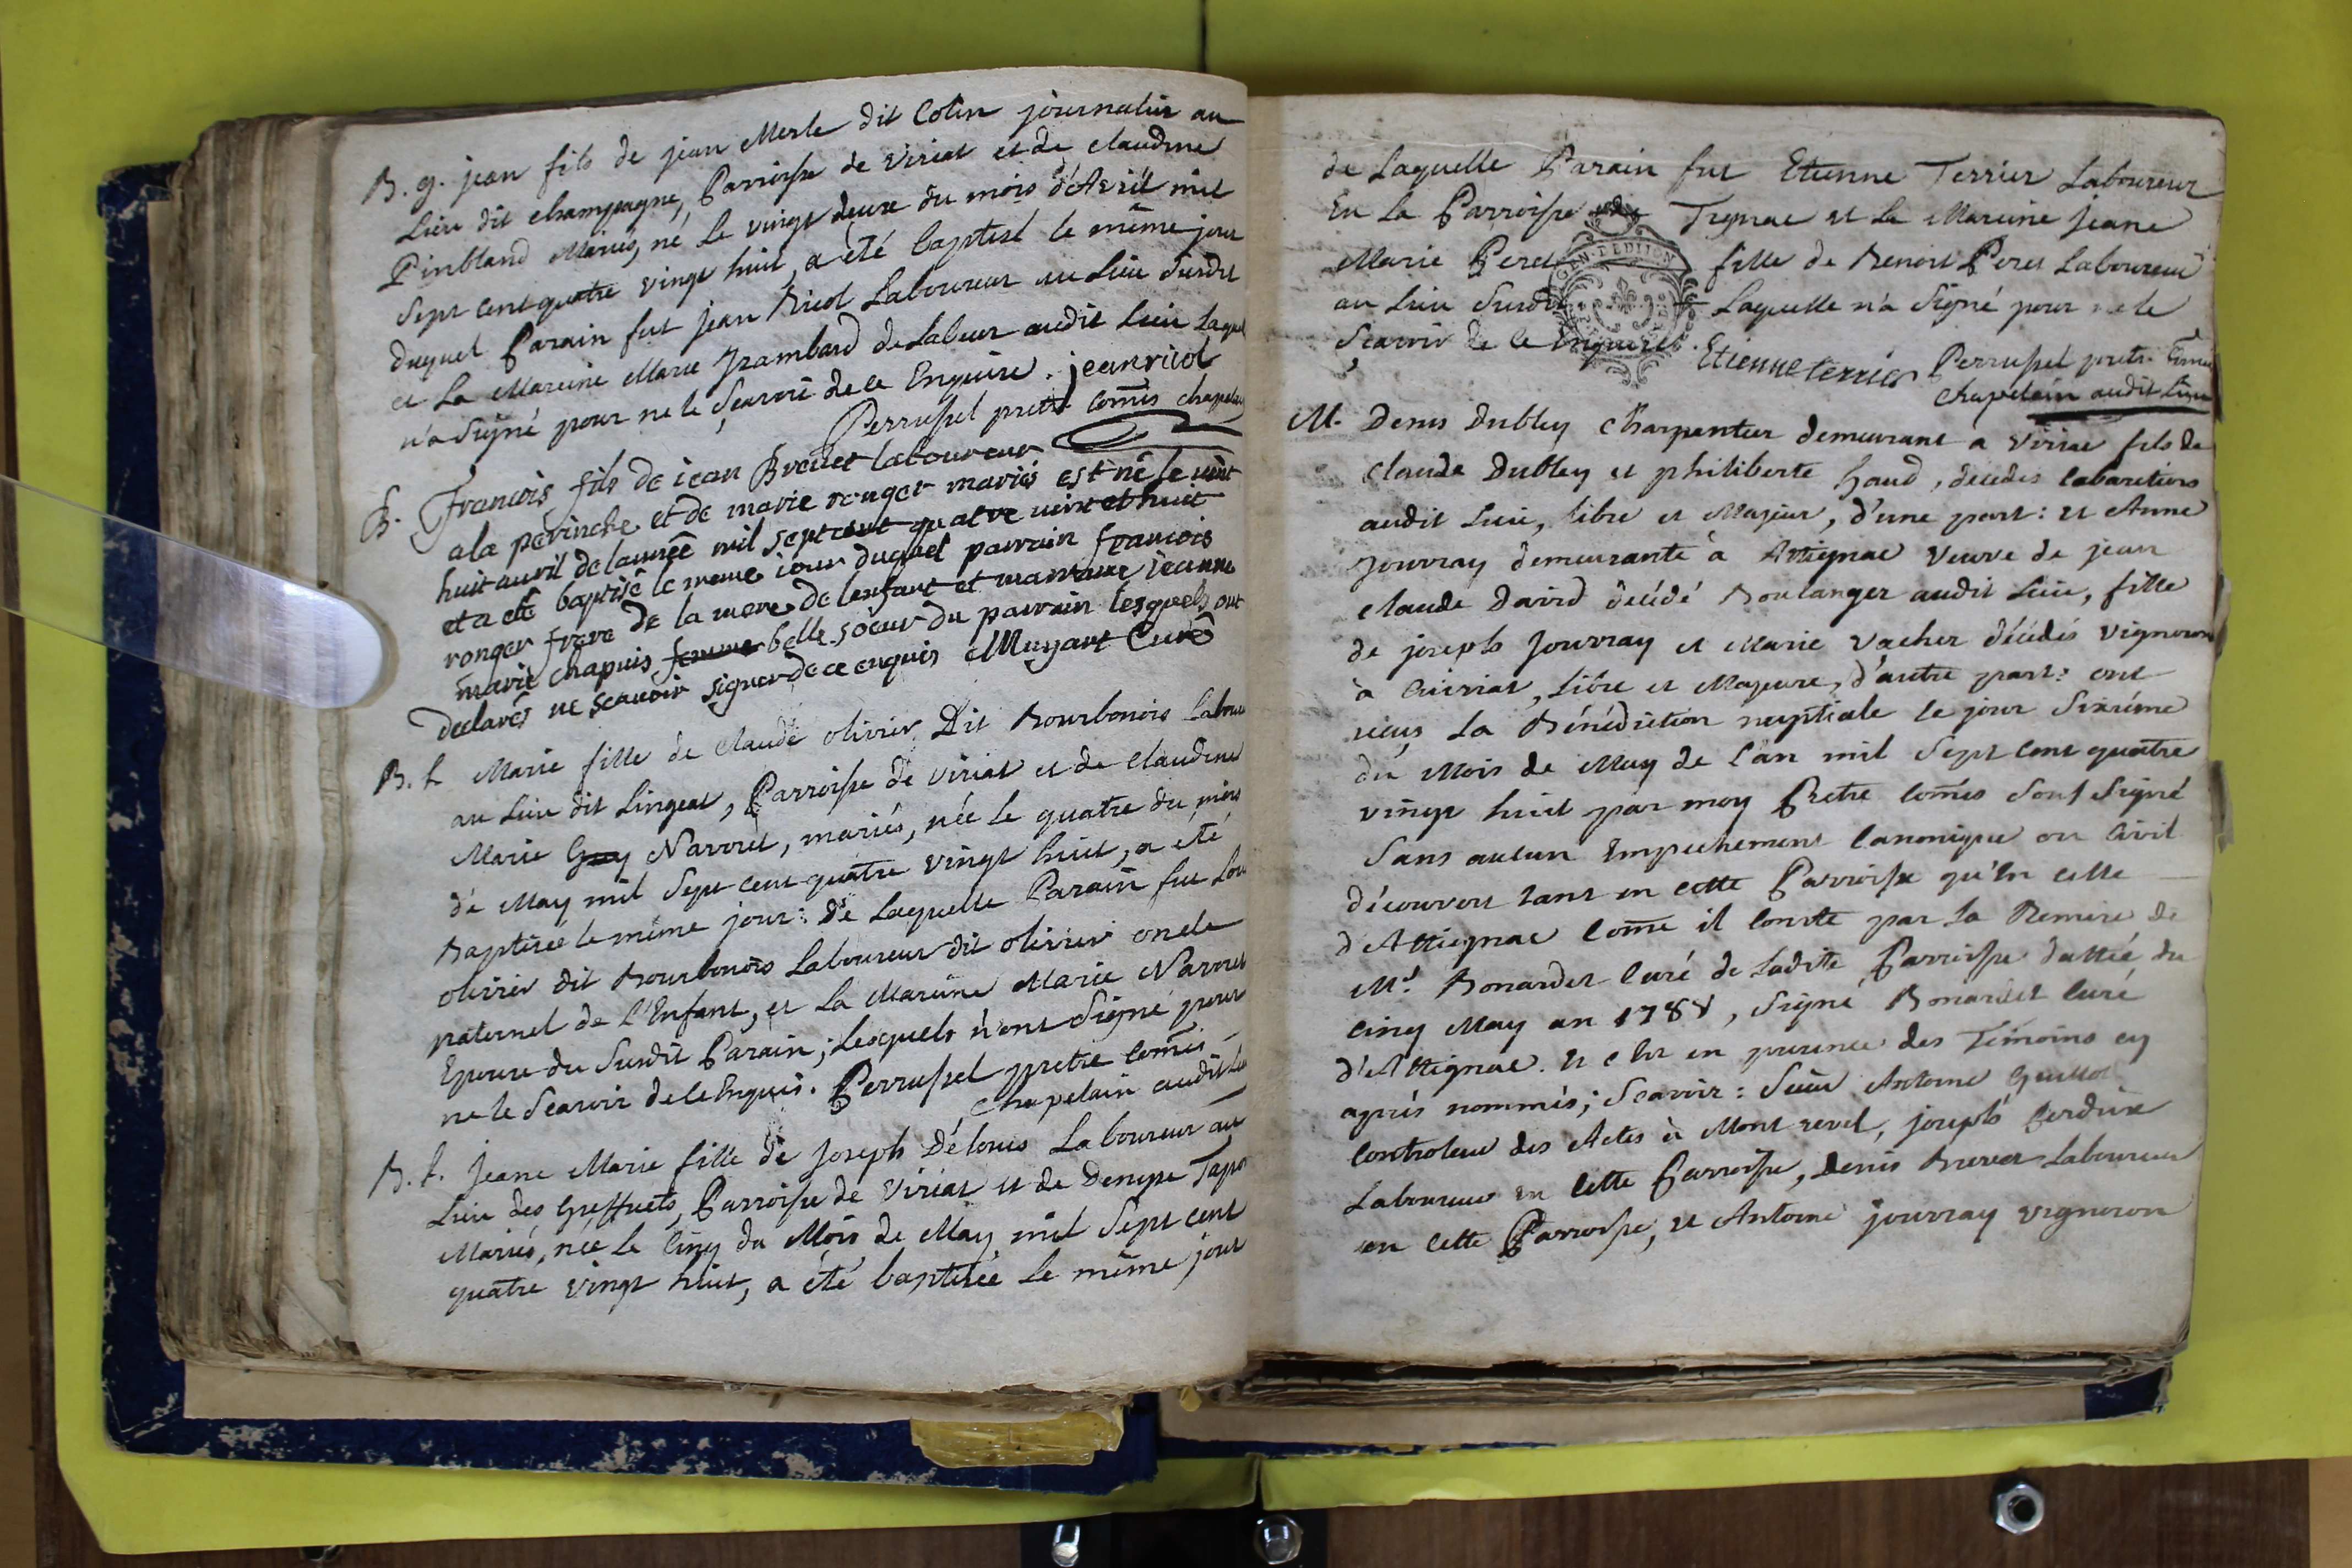 B. g. jean fils de jean Merle dit Colin journalier au
Lieu dit champagne, Parroisse de Viriat et de claudine
Pinbland Mariés, né le vingt deuxe du mois d'Avril mil
Sept cent quatre vingt huit, a été baptisé le même jour
duquel Parain fut jean Ricol Laboureur au Lieu Susdit
et La Mareine Marie Jrambard de Labeur audit Lieu Laquel
n'a Signé pour ne le Sçavoir de ce Enquise. jean ricol
Perrussel pretre comis chapelain
B. François fils de jean Brevet laboureur
a la pervinche et de marie ronger mariés est né le vint
huit auvril de lannéé mil sept cent quatre vint et huit
et a eté baptisé le meme iour duquel parrain francois
ronger frere de la mere de lenfant et marraine jeanne
marie chapuis femme belle soeur du parrain lesquels ont
declarés ne scauoir signer de ce enquis Muyart Curé
B. f. Marie fille de Claude olivier Dit Bourbonois Labou
au Lieu dit Lingeat, Parroisse de Viriat et de Claudine
Marie Guy Navoret, mariés, née le quatre du mois
de May mil Sept cent quatre vingt huit, a eté
Baptisée le même jour: de Laquelle Parain fut Lou
olivier dit Bourbonois Laboureur dit olivier oncle
paternel de l'Enfant, et La Mareine Marie Navoret
Epouse du Susdit Parain; Lesquels n'ont Signé pour
ne le Scavoir de ce Enquis. Perrussel pretre comis
Chapelain audit Lieu
B. f. Jeane Marie fille de Joseph Délorus Laboureur au
Lieu des Greffuets, Parroisse de Viriat et de Denyse Tapon
Mariés, née le Cinq du Mois de May mil Sept cent
quatre vingt huit, a été baptisée le même jour
de Laquelle Parain fut Etienne Terrier Laboureur
En la Parroisse de Tregnac et La Mareine Jeane
Marie Peret fille de Benoit Peret Laboureur
au Lieu Susdit Laquelle n'a Signé pour ne le
Sçavoir de ce Enquises. Etienne terrier Perrussel pretre Comis
GEN. DE DIJON
Chapelain audit Lieu
M. Denis Dubley Charpentier demeurant a Viriac fils de
Claude Dubley et philiberte haud, décédés Cabaretiers
audit Lieu, libre et Majeur, d'une part: et Anne
Jouvray demeurante à Attignac Veuve de jean
claude David décédé Boulanger audit Lieu, fille
de joseph Jouvray et Marie Vacher décédés Vignerons
à Cuiriat, libre et Majeure, d'autre part: ont
reçus La Bénédiction nuptiale le jour Sixième
du Mois de May de l'an mil Sept cent quatre
vingt huit par moy Pretre Comis Sous Signé
Sans aucun Empechement Canonique ou Civil
découvert tant en cette Parroisse qu'En celle
d'Attignac Come il Conste par La Remise de
Mr. Bonardet Curé de Ladite Parroisse dattée du
cinq May an 1788, Signé Bonardet Curé
d'Attignac. Et c'est en presence des Temoins cy
aprés nommés; Scavoir: Sieur Antoine Guillot
Controleur des Actes à Mont revel, joseph Perdrix
Laboureur En Cette Parroisse, Denis Brevet Laboureur
en Cette Parroisse, et Antoine jouvray vigneron